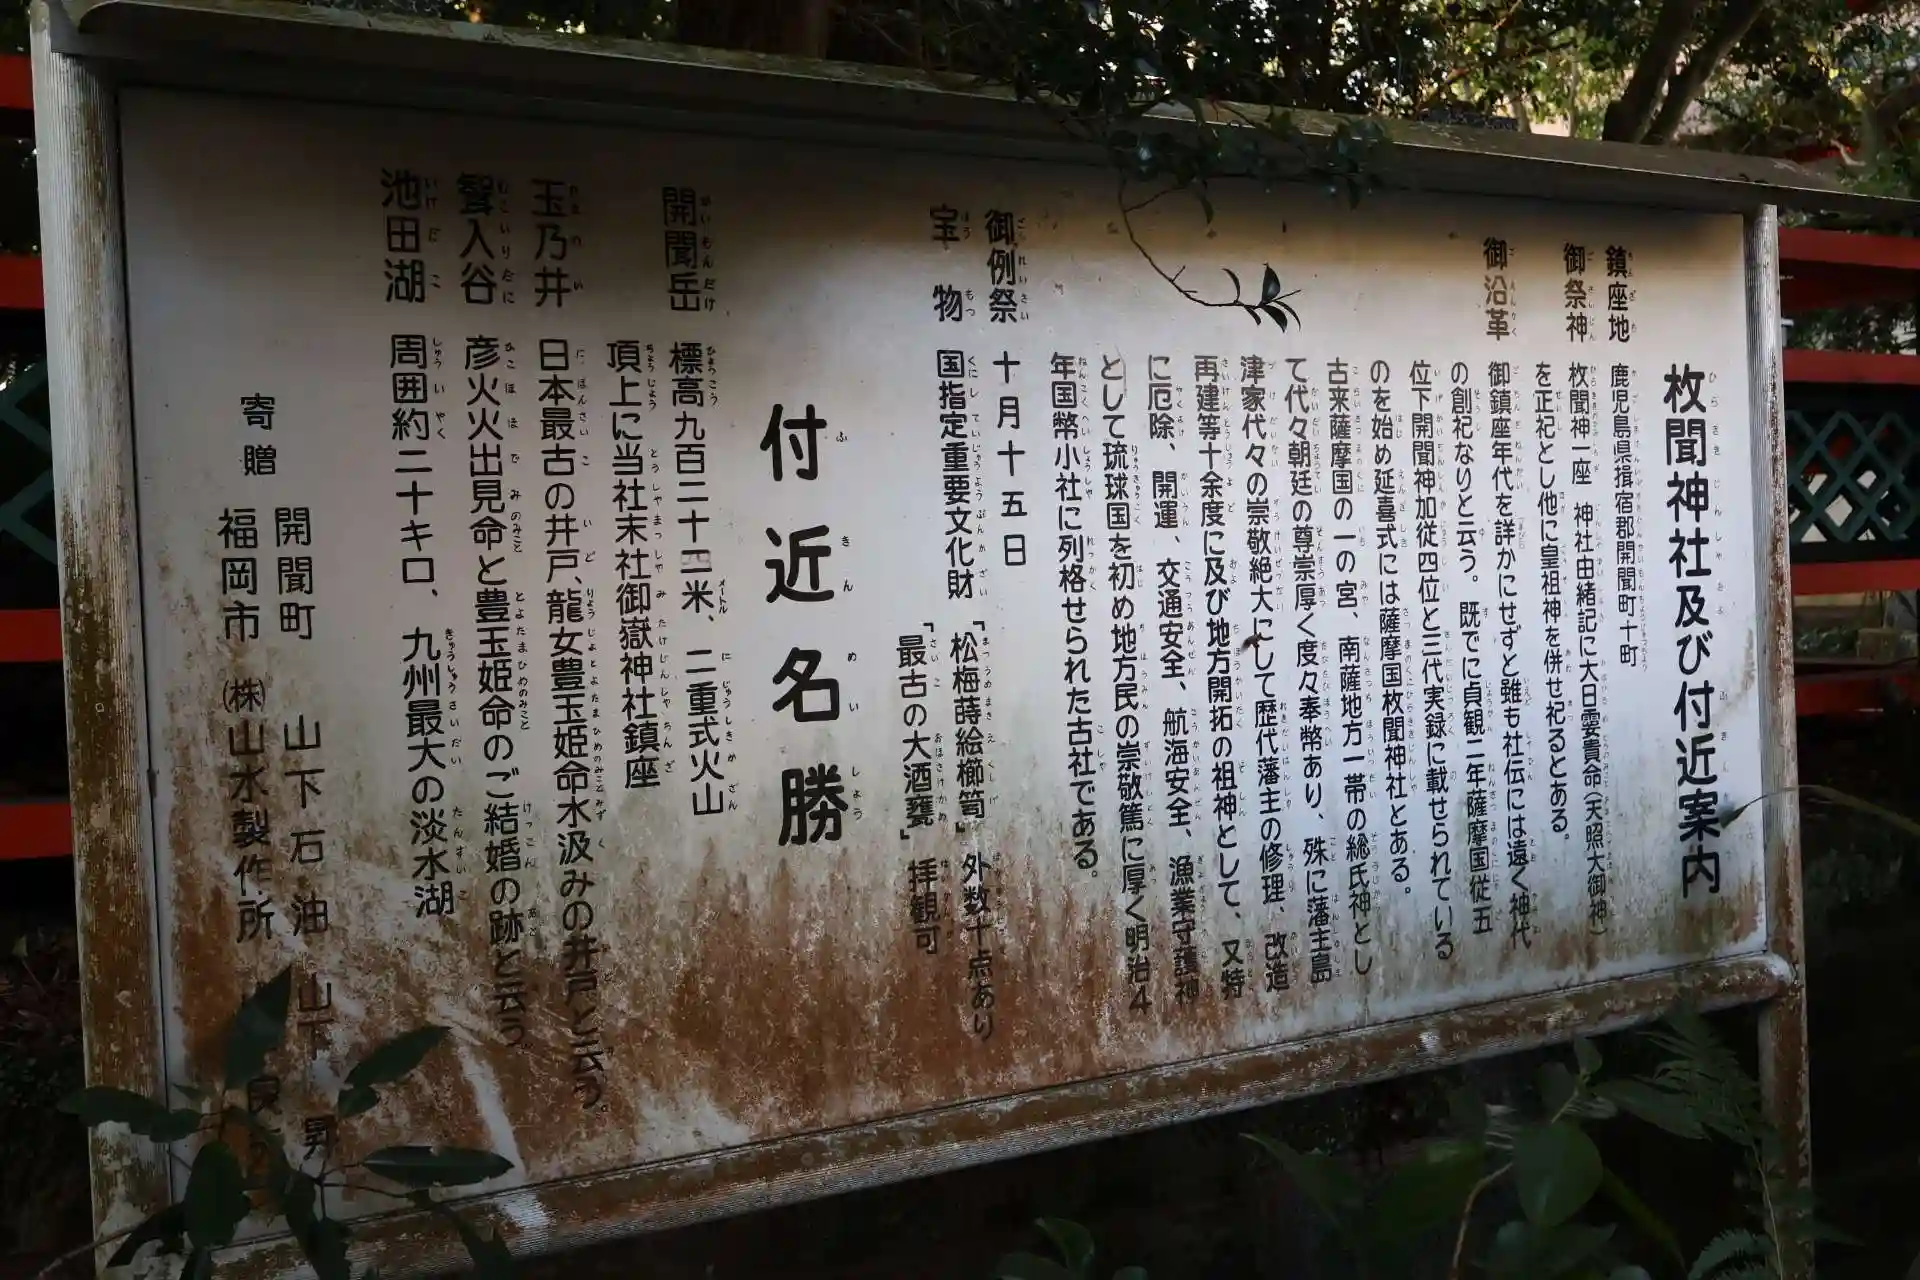 枚聞神社及び付近案内
鎮座地 鹿児島県揖宿郡開聞町十町
御祭神 枚聞神一座 神社由緒記に大日孁貴命(天照大御神)
を正祀とし他に皇祖神を併せ祀るとある。
御沿革 御鎮座年代を詳かにせずと雖も社伝には遠く神代
の創祀なりと云う。既でに貞観二年薩摩国従五
位下開聞神加従四位と三代実録に載せられている
のを始め延喜式には薩摩国枚聞神社とある。
古来薩摩国の一の宮、南薩地方一帯の総氏神とし
て代々朝廷の尊崇厚く度々奉幣あり、殊に藩主島
津家代々の崇敬絶大にして歴代藩主の修理、改造
再建等十余度に及び地方開拓の祖神として、又特
に厄除、開運、交通安全、航海安全、漁業守護神
として琉球国を初め地方民の崇敬篤に厚く明治4
年国幣小社に列格せられた古社である。
御例祭 十月十五日
宝物 国指定重要文化財 「松梅蒔絵櫛笥」外数十点あり
「最古の大酒甕」 拝観可
付近名勝
開聞岳 標高九百二十四米、二重式火山
頂上に当社末社御嶽神社鎮座
玉乃井 日本最古の井戸、龍女豊玉姫命水汲みの井戸と云う。
聟入谷 彦火火出見命と豊玉姫命のご結婚の跡と云う
池田湖 周囲約二十キロ、九州最大の淡水湖
寄贈 開聞町 山下石油 山下 昇
福岡市 (株)山水製作所